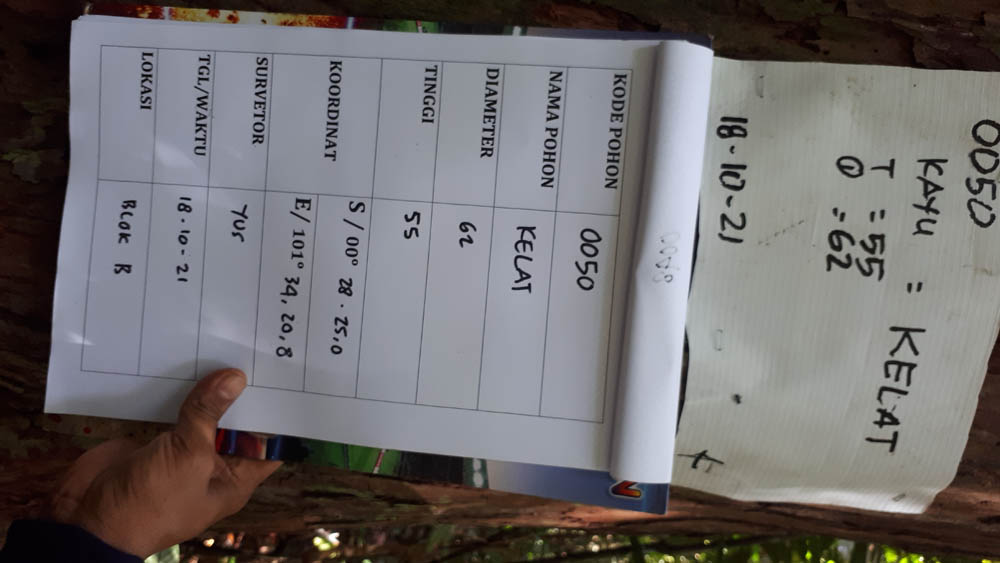 0050
KAYU = KELAT
T = 55
Ⓘ = 62
18-10-21
KODE POHON 0050
NAMA POHON KELAT
DIAMETER 62
TINGGI 55
KOORDINAT
S / 00° 28 . 25,0
E/ 101° 34, 20,8
SURVETOR YUS
TGL/WAKTU 18-10-21
LOKASI BLOK B